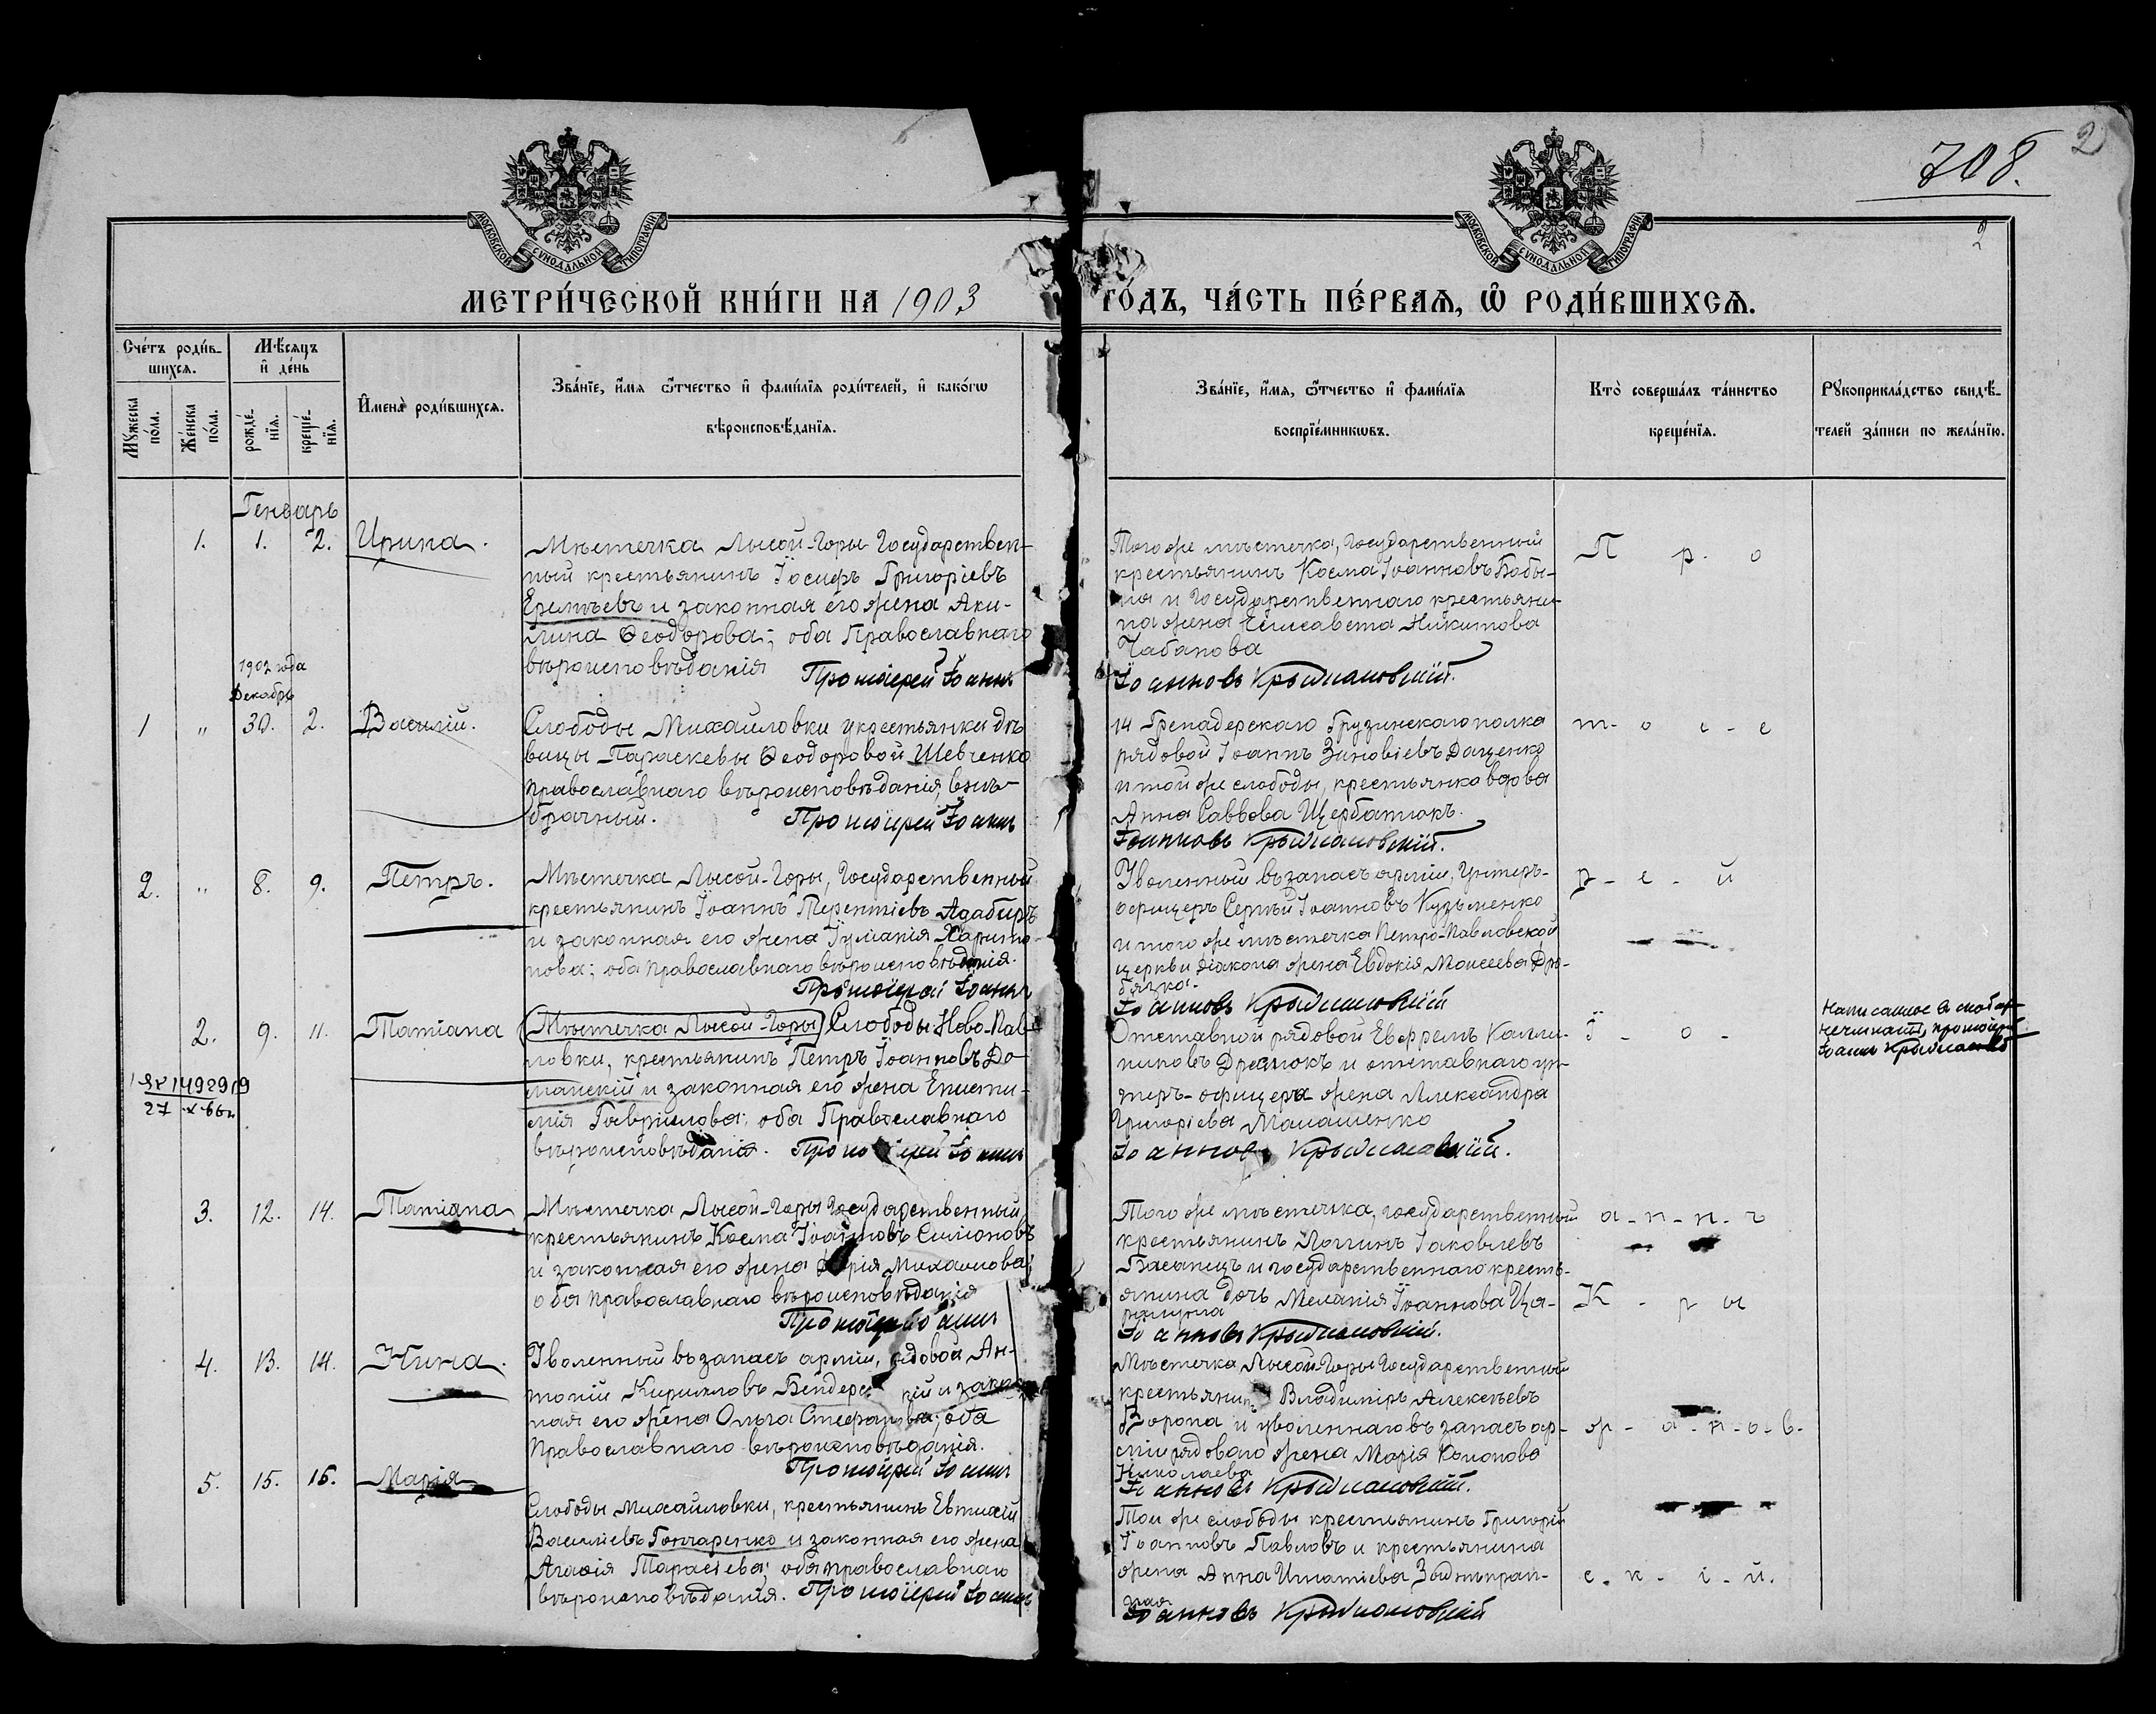 708.
2
2
МОСКОВСКОЙ СУНОДАЛЬНОЙ ТИПОГРАФІИ
МОСКОВСКОЙ СУНОДАЛЬНОЙ ТИПОГРАФІИ
МЕТРИ́ЧЕСКОЙ КНИ́ГИ НА 1903
ГО́ДЪ, ЧА́СТЬ ПЕ́РВАЯ, Ѡ РОДИ́ВШИХСЯ.
Сче́тъ роди́в-
шихся.
Мꙋ́жеска по́ла.
Же́нска по́ла.
Мѣ́сяцъ
и҆ де́нь
рожде́-
нїя.
креще́-
нїя.
И҆мена̀ роди́вшихся.
Зва́нїе, и҆́мя ѻ҆́тчество и҆ фами́лїя роди́телей, и҆ како́гѡ
вѣроисповѣ́данїя.
Зва́нїе, и҆́мя, ѻ҆́тчество и҆ фами́лїя
воспрїе́мникѡвъ.
Кто̀ соверша́лъ та́инство
креще́нїя.
Рꙋкоприкла́дство свидѣ́-
телей за́писи по жела́нїю.
Генварь
1. 1. 2. Ирина.
Мѣстечка Лысой-Горы Государствен-
ный крестьянинъ Іосифъ Григоріевъ
Еремѣевъ и законная его жена Аки-
лина Ѳеодорова; оба Православнаго
вѣроисповѣданія Протоіерей Іоаннъ
Того же мѣстечка, Государственный
крестьянинъ Косма Іоанновъ Бобы-
ля и Государственнаго крестьяни-
на жена Елисавета Никитова
Чабанова
Іоанновъ Крыжановскій.
П р. о
1902 года
Декабрь
1 " 30. 2. Василій.
Слободы Михайловки у крестьянки дѣ
вицы Параскевы Ѳеодоровой Шевченко
православнаго вѣроисповѣданія, внѣ-
брачный. Протоіерей Іоаннъ
14 Гренадерскаго Грузинскаго полка
рядовой Іоаннъ Зиновіевъ Даценко
и той же слободы, крестьянка вдова
Анна Саввова Щербатюкъ.
Іоанновъ Крыжановскій.
т - о і - е
2. " 8. 9. Петръ.
Мѣстечка Лысой-Горы, Государственный
крестьянинъ Іоаннъ Терентіевъ Адабиръ
и законная его жена Іуліанія Харито-
нова; оба Православнаго вѣроисповѣданія.
Протоіерей Іоаннъ
Уволенный въ запасъ арміи, Унтеръ-
офицеръ Сергѣй Іоанновъ Кузьменко
и того же мѣстечка Петро-Павловской
церкви діакона жена Евдокія Моисеева Дро-
бязко.
Іоанновъ Крыжановскій
р - е - й
2. 9. 11. Татіана
(Мѣстечка Лысой-Горы) Слободы Ново-Пав-
ловки, крестьянинъ Петръ Іоанновъ До-
манскій и законная его жена Еписти-
мія Гавріилова; оба Православнаго
вѣроисповѣданія. Протоіерей Іоаннъ
Отставной рядовой Ефремъ Калли-
никовъ и отставнаго ун-
теръ-офицера жена Александра
Григоріева Малашенко
Іоанновъ Крыжановскій.
І - о -
Написанное въ скобкахъ
не читать, протоіерей
Іоаннъ Крыжановскій
3. 12. 14. Татіана
Мѣстечка Лысой-Горы Государственный
крестьянинъ Косма Іоанновъ Симоновъ
и законная его жена Марія Михайлова;
оба Православнаго вѣроисповѣданія
Протоіерей Іоаннъ
Того же мѣстечка, государственный
крестьянинъ Логгинъ Іаковлевъ
Басанецъ и государственнаго кресть-
янина дочь Меланія Іоаннова
Іоанновъ Крыжановскій.
а - н - н - ъ
К - р ы
4. 13. 14. Нина.
Уволенный въ запасъ арміи, рядовой Ан-
тоній Кирилловъ Бендерскій и закон-
ная его жена Ольга Стефанова, оба
Православнаго вѣроисповѣданія.
Протоіерей Іоаннъ
Мѣстечка Лысой-Горы Государственный
крестьянинъ Владиміръ Алексѣевъ
Ворона и уволеннаго въ запасъ ар-
міи рядоваго жена Марія Кононова
Николаева
Іоанновъ Крыжановскій.
ж - а - н - о - в -
5. 15. 16. Марія
Слободы Михайловки, крестьянинъ Евтихій
Василіевъ Гончаренко и законная его жена
Агафія Тарасіева; оба православнаго
вѣроисповѣданія. Протоіерей Іоаннъ
Той же слободы крестьянинъ Григорій
Іоанновъ Павловъ и крестьянина
жена Анна Игнатіева
Іоанновъ Крыжановскій
с - к - і - й.